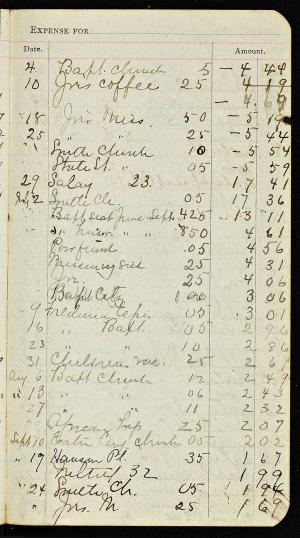 EXPENSE FOR
Date. Amount.
4 Bapt. Church 5 - 4 44
10 Jns coffee 25 4 19
- 4.69
18 Jns Miss. 50 - 5 19
25 " " 25 - 5 44
Smith Church 10 - 5 54
State St. " 05 - 5 59
29 Salay 23. 17 41
July 2 Smith Ch. 05 17 36
Bapt seat June Sept. 425 13 11
" " " 850 4 61
Poor fund .05 4 56
25 4 31
25 4 06
Bapt City 1 00 3 06
9 Fredonia 05 3 01
16 " Bapt. 05 2 96
23 " 10 2 86
31 Children 25 2 61
Aug. 6 Bapt Church 12 2 49
" 13 " " 06 2 43
27 " 11 2 32
25 2 07
Sept 10 Church 05 2 02
" 19 Hanson Pl. 35 1 67
32 1 99
" 24 Ch. 05 1 94
" Jns. M 25 1 69